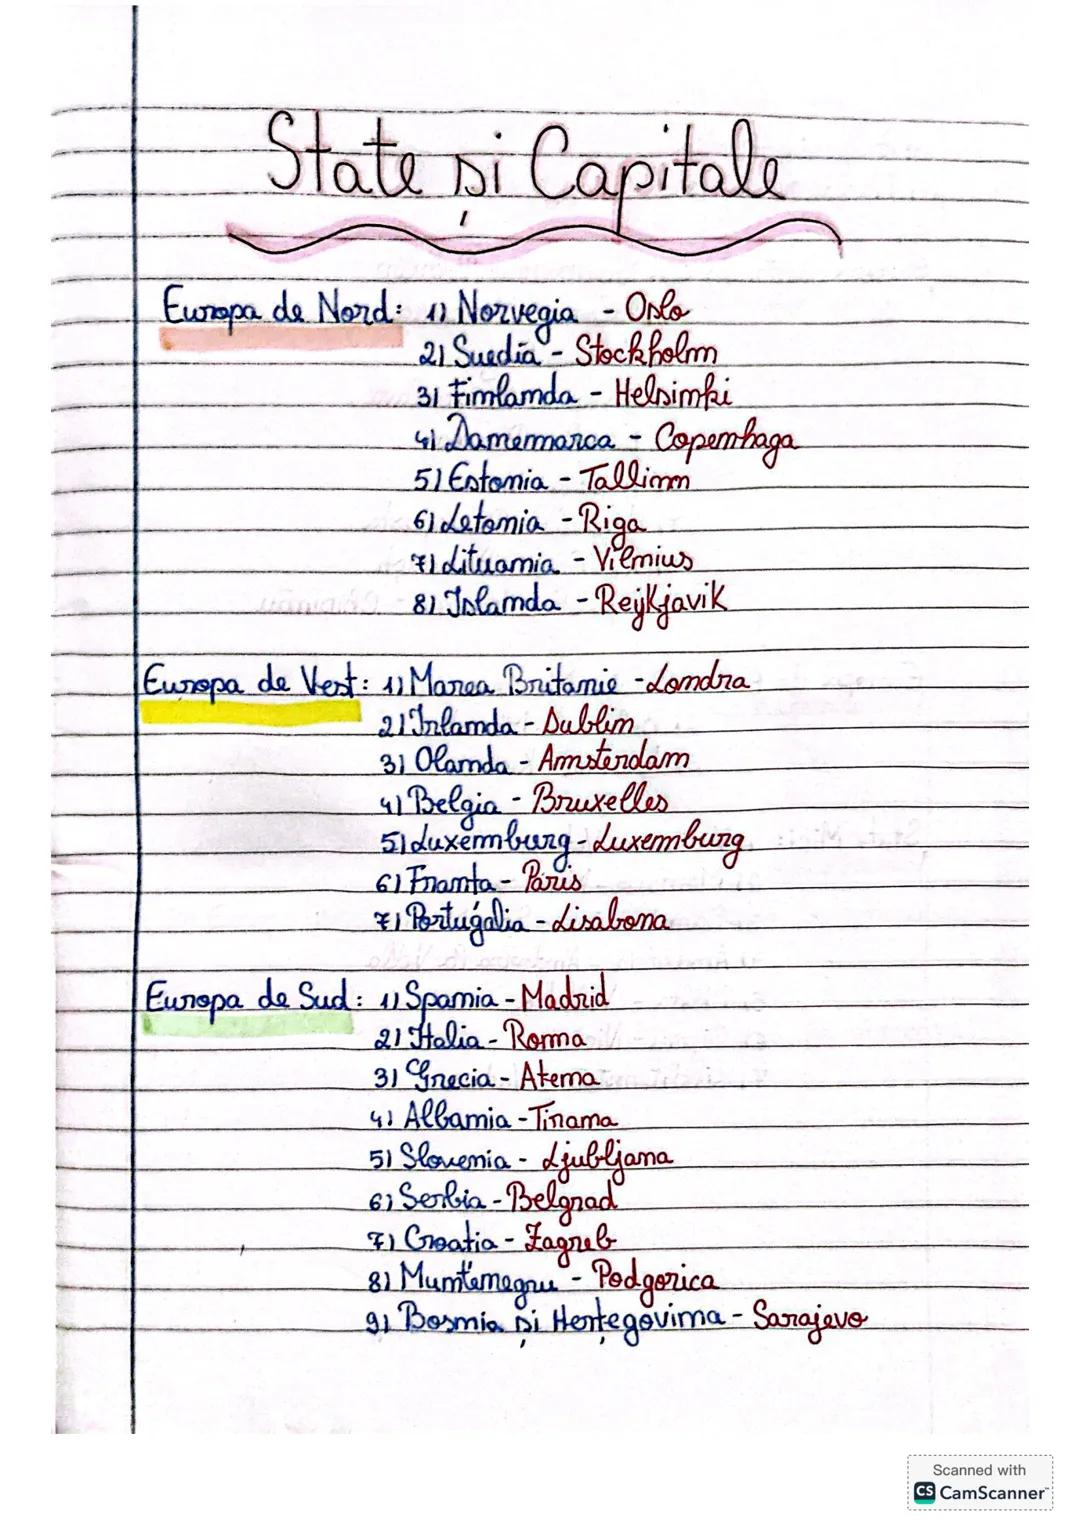 State și Capitale
Europa de Nord: 1) Norvegia - Oslo
2) Suedia - Stockholm
3) Finlanda - Helsinki
4) Danemarca - Copenhaga
5) Estonia - Tallinn
6) Letonia - Riga
7) Lituania - Vilnius
8) Islanda - Reijkjavik
Europa de Vest: 1) Marea Britanie - Londra
2) Irlanda - Dublin
3) Olanda - Amsterdam
4) Belgia - Bruxelles
5) Luxemburg - Luxemburg
6) Franta - Paris
7) Portugalia - Lisabona
Europa de Sud: 1) Spania - Madrid
2) Italia - Roma
3) Grecia - Atena
4) Albania - Tirana
5) Slovenia - Ljubljana
6) Serbia - Belgrad
7) Croatia - Zagreb
8) Muntenegru - Podgorica
9) Bosnia și Herțegovina - Sarajevo
Scanned with
CS CamScanner